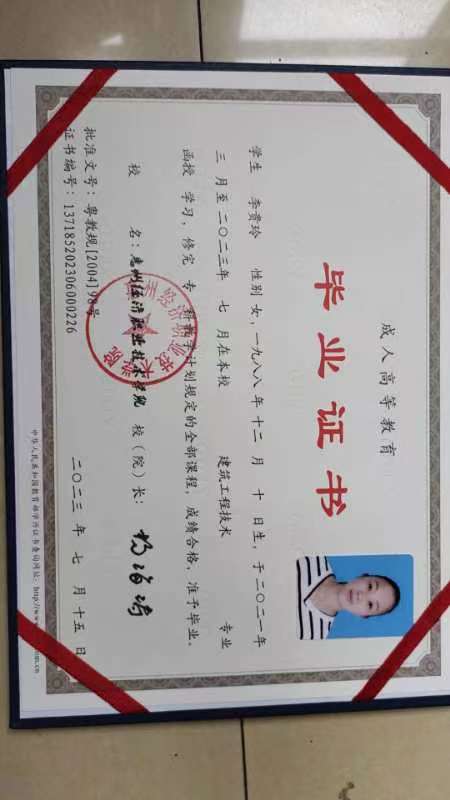 成人高等教育
毕业证书
学生 李贵玲 性别 女，一九八八年 十二 月 十 日生，于二〇二一年
三 月至二〇二三年 七 月在本校 建筑工程技术 专业
函授 学习，修完 专 科教学计划规定的全部课程，成绩合格，准予毕业。
校 名：惠州经济职业技术学院 校（院）长：
批准文号：粤教规[2004]98号 二〇二三 年 七 月 十五 日
证书编号：137185202306000226
中华人民共和国教育部学历证书查询网址：http://www.